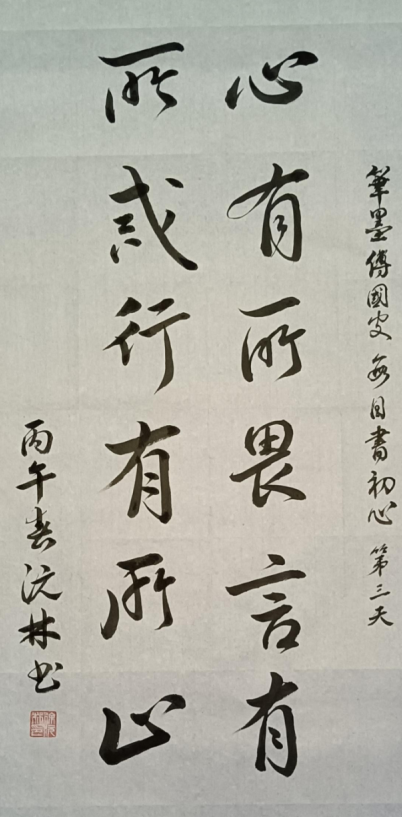 筆墨傳國 每日書初心 第三天
心有所畏言有
所戒行有所止
丙午春沅林书